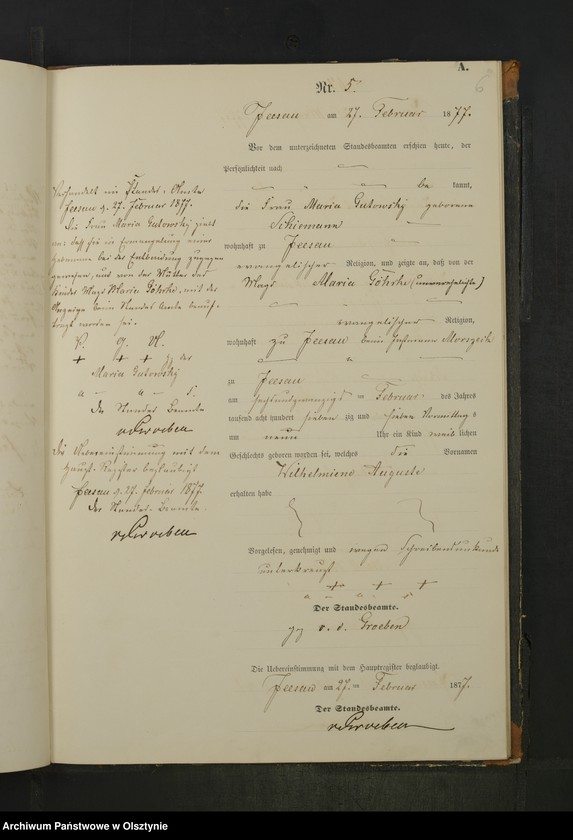 A.
6
Nr. 5.
Jeesau am 27. Februar 1877.
Vor dem unterzeichneten Standesbeamten erschien heute, der
Persönlichkeit nach
be kannt,
die Frau Maria Gutowsky geborene
Schiemann
wohnhaft zu Jeesau
evangelischer Religion, und zeigte an, daß von der
Magd Maria Göhrke (unverehelichte)
evangelischer Religion,
wohnhaft zu Jeesau beim
zu Jeesau
am sechsundzwanzigst en Februar des Jahres
tausend acht hundert sieben zig und sieben Vormittags
um neun Uhr ein Kind weib lichen
Geschlechts geboren worden sei, welches die Vornamen
Wilhelmiene Auguste
erhalten habe
Vorgelesen, genehmigt und wegen Schreibensunkunde
unterkreuzt
+ + +
Der Standesbeamte.
gez v. d. Groeben
Die Uebereinstimmung mit dem Hauptregister beglaubigt.
Jeesau am 27. ten Februar 1877.
Der Standesbeamte.
vdGroeben
Verhandelt im Standes-Amte
Jeesau d. 27. Februar 1877.
Die Frau Maria Gutowsky zeigt
an: daß sie in Ermangelung einer
Hebamme bei der Entbindung zugegen
gewesen, und von der Mutter des
Kindes Magd Maria Göhrke, mit der
Anzeige beim Standes Amte beauf-
tragt worden sei.
V. G. U.
+ + + Hz der
Maria Gutowsky
a u s.
Der Standes Beamte
vdGroeben
Die Uebereinstimmung mit dem
Haupt-Register beglaubigt
Jeesau d. 27. Februar 1877.
Der Standes-Beamte.
vdGroeben
Archiwum Państwowe w Olsztynie